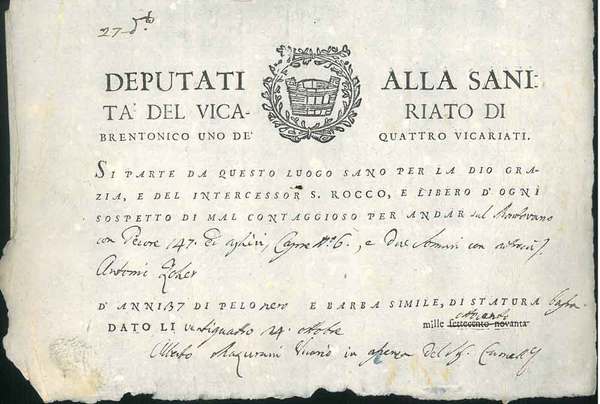 27
DEPUTATI ALLA SANI-
TA' DEL VICA- RIATO DI
BRENTONICO UNO DE' QUATTRO VICARIATI.
SI PARTE DA QUESTO LUOGO SANO PER LA DIO GRA-
ZIA, E DEL INTERCESSOR S. ROCCO, E LIBERO D'OGNI
SOSPETTO DI MAL CONTAGGIOSO PER ANDAR sul Mantovano
con Pecore 147. , Capre N.º 6., e due Somari con
Antonio
D'ANNI 37 DI PELO nero E BARBA SIMILE, DI STATURA bassa
DATO LI ventiquatro 24. ottobre mille settecento novanta
Alberto in del